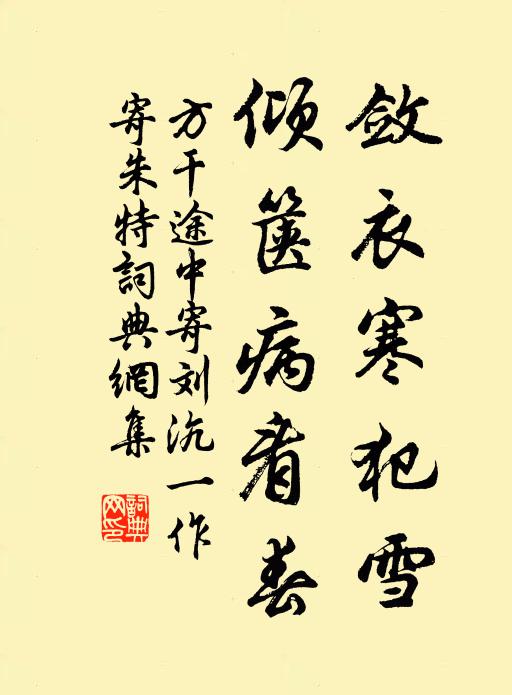 敛衣寒犯雪
倾箧病看春
方干途中寄刘沆一作
寄朱特詞典網集
詞典
网印